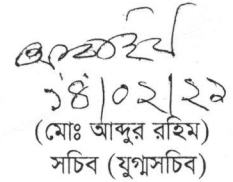 ১৪/০২/২১
(মোঃ আব্দুর রহিম)
সচিব (যুগ্মসচিব)